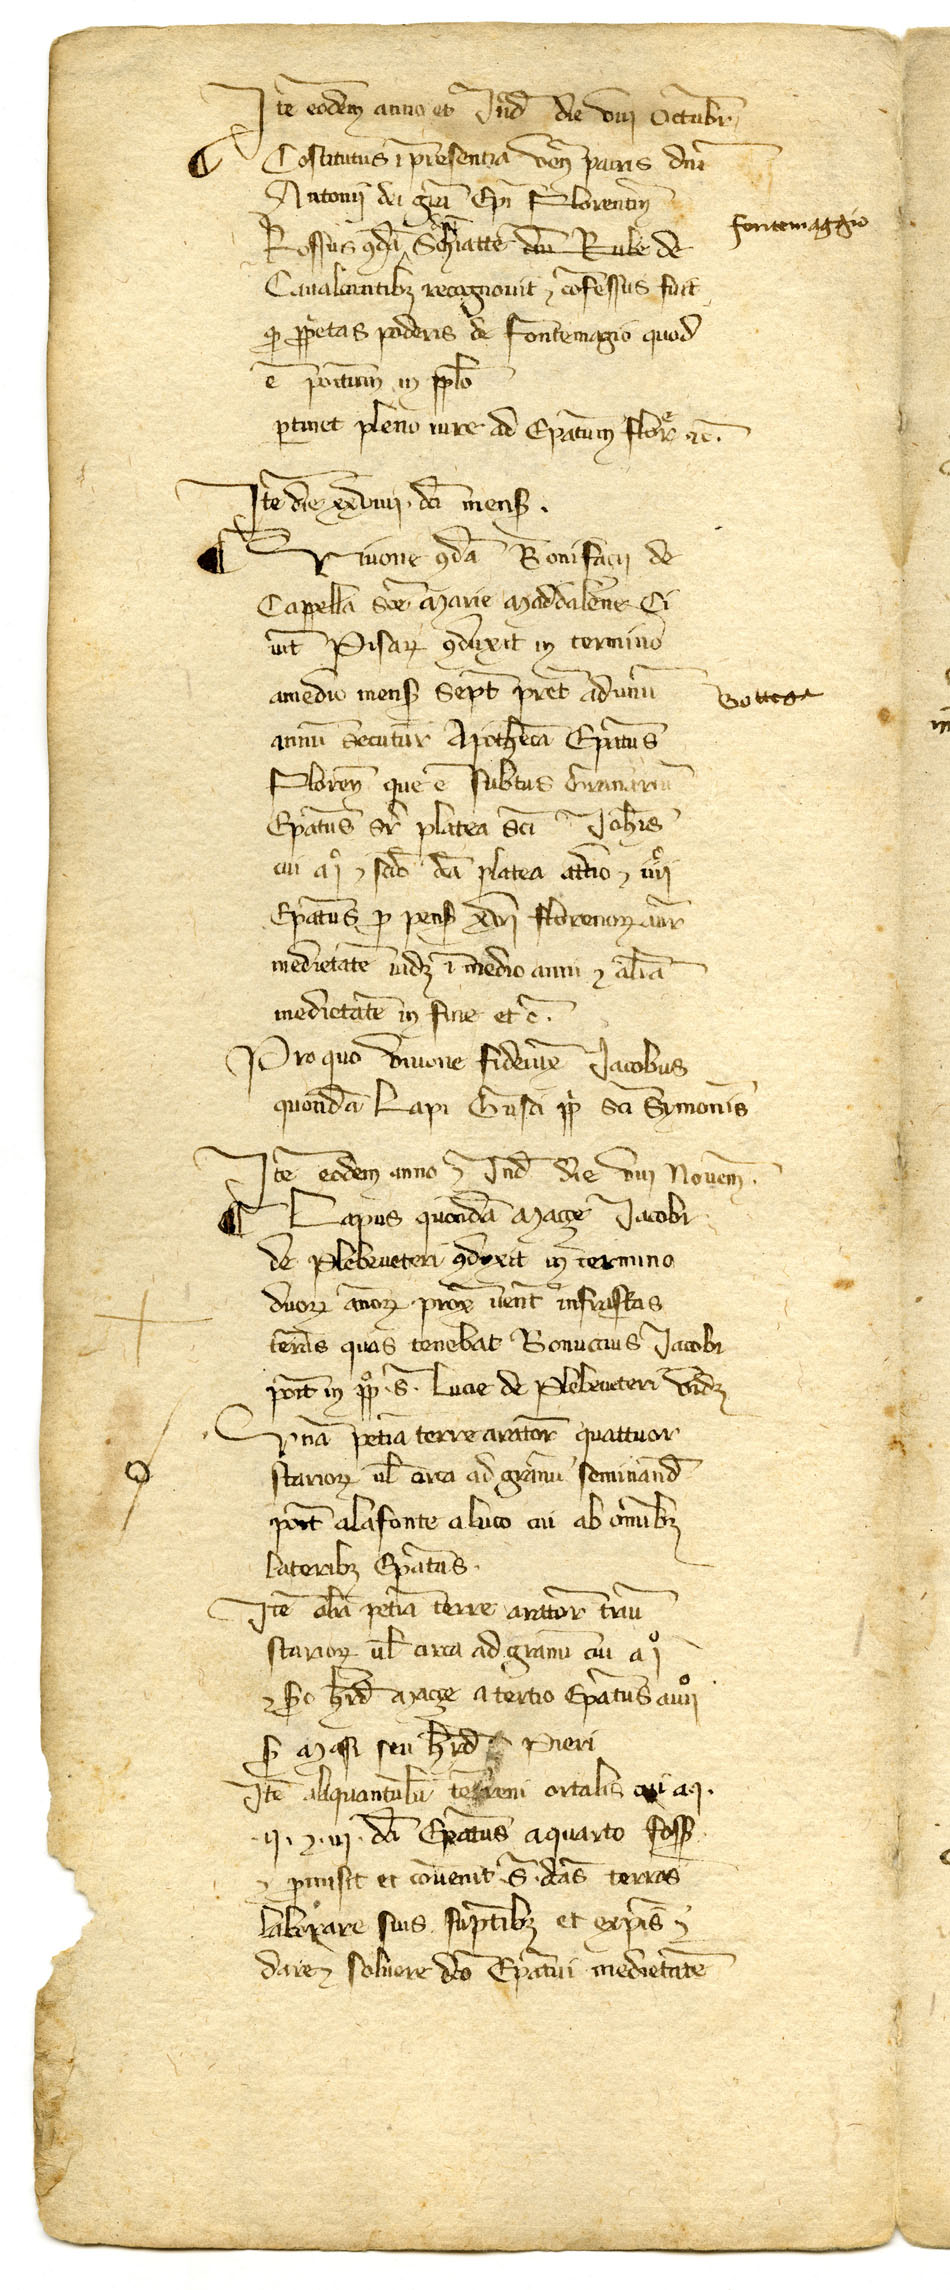 Itē eodem anno et Ind die viii Octubr
Costitutus i presentia ven patris dni
Antonii dei gra Epi Florentin
fontemaggio
Rossus qda Schiatte dni Rube de
Cavalcantibz recognovit & cofessus fuit
q ppetas poderis de fontemagio quod
ē positum in pplo
ptinet pleno iure ad Epatum flor &c.
Itē die xxviiii dci mens.
Vivone qda Bonifacii de
Cappella sce Marie Maddalene Ci
vit Pisar qduxit in termino
amedio mens Sept pret ad unu
Bottega
annu secutur Apotheca Epatus
Floren que ē subtus Granariu
Epatus sr platea sci Johis
cui a j & scdo dca platea attio & iiij
Epatus p pens xvi florenor aur
medietate vidz i medio anni & alia
medietate in fine et c.
Pro quo Vivone fideiux Jacobus
quonda Lapi Guisci pp sci Symonis
Itē eodem anno & Ind die viii Novem.
Lapus quonda Macze Jacobi
de Plebeveteri qduxit in termino
duor annor prox vent infrascptas
terras quas tenebat Bonuccius Jacobi
posit in ppo S. Lucie de Plebeveteri vidz
Una petia terre arator quattuor
starior vl circa ad granu seminand
posit alafonte aluco cui ab omibz
lateribz Epatus.
Itē alia petia terre arator triu
starior vl circa ad granu cui a j
& scdo hrd Macze a tertio Epatus a iiij
S Masi seu hrd Pieri
Itē aliquantulu terreni ortalis cui a j.
.ij. & .iij. dci Epatus aquarto foss
& pmisit et convenit S. dcas terras
laborare suis suptibz et expis &
dare & solvere dco Epatui medietate